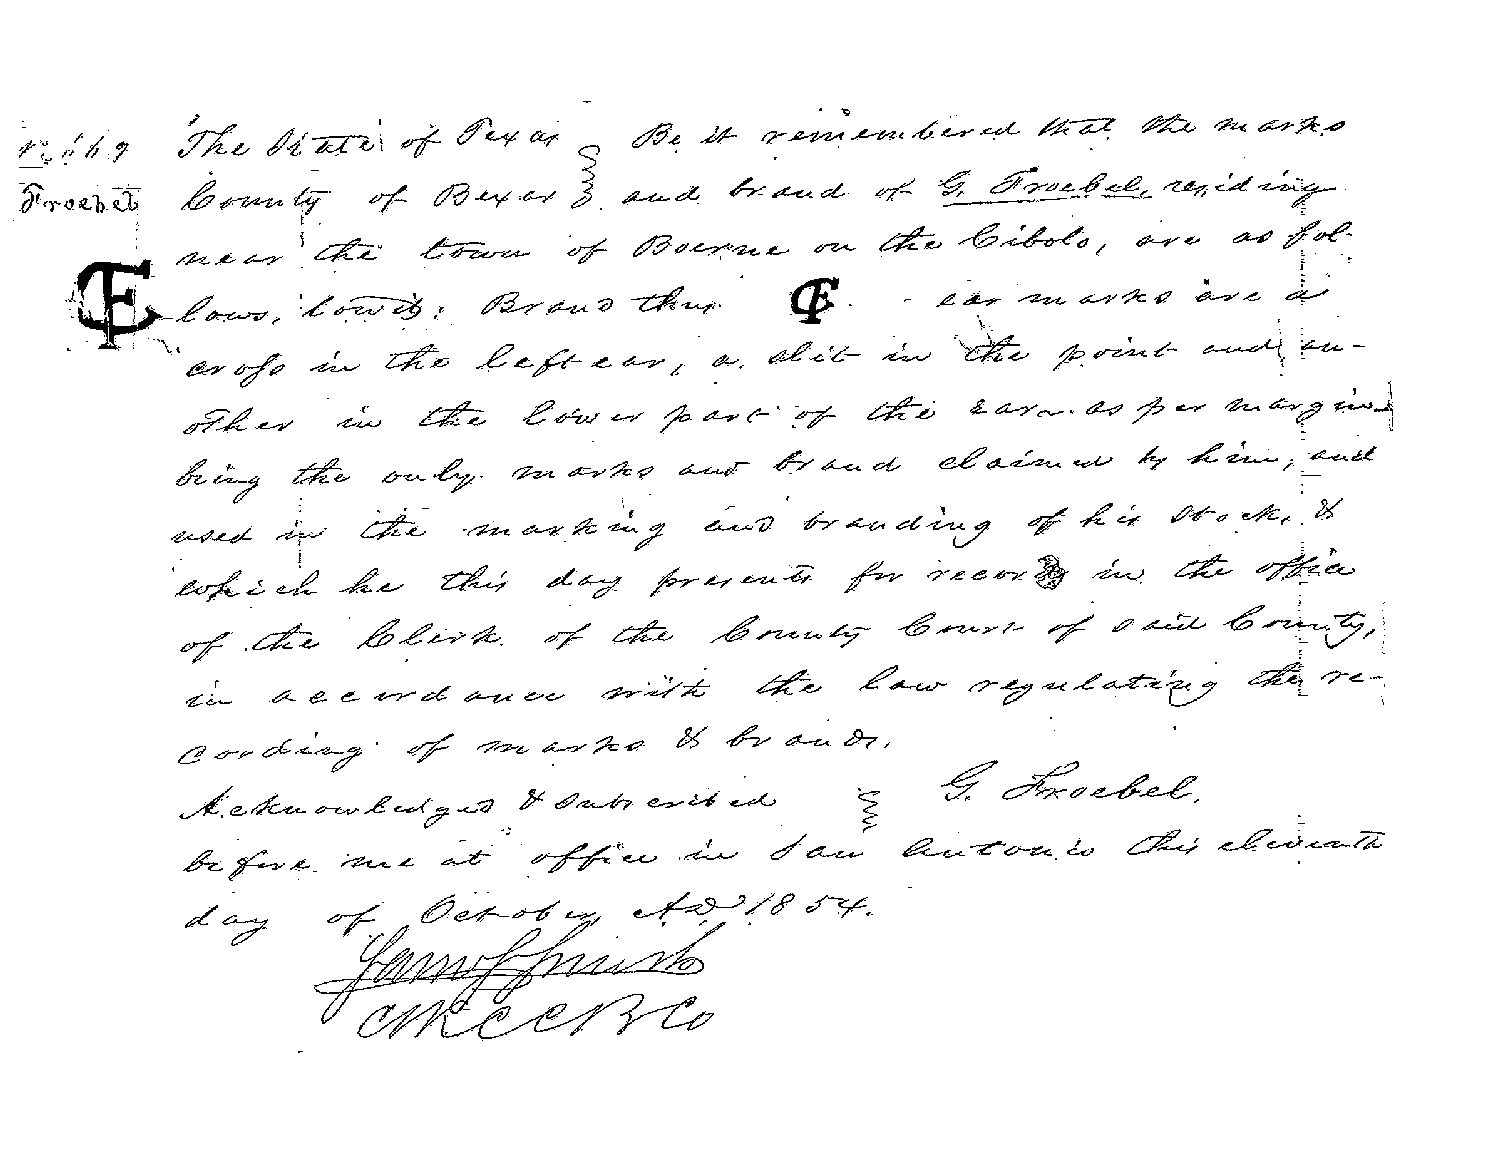 The State of Texas Be it remembered that the marks
Froebel County of Bexar and brand of G. Froebel, residing
near the town of Boerne on the Cibolo, are as fol-
lows, towit: Brand thus CF ear marks are a
cross in the left ear, a slit in the point and an-
other in the lower part of the ear as per margin
being the only marks and brand claimed by him, and
used in the marking and branding of his stock, &
which he this day presents for record in the office
of the Clerk of the County Court of said County,
in accordance with the law regulating the re-
cording of marks & brands.
Acknowledged & subscribed G. Froebel.
before me at office in San Antonio this eleventh
day of October, AD, 1854.
CKCCBCo